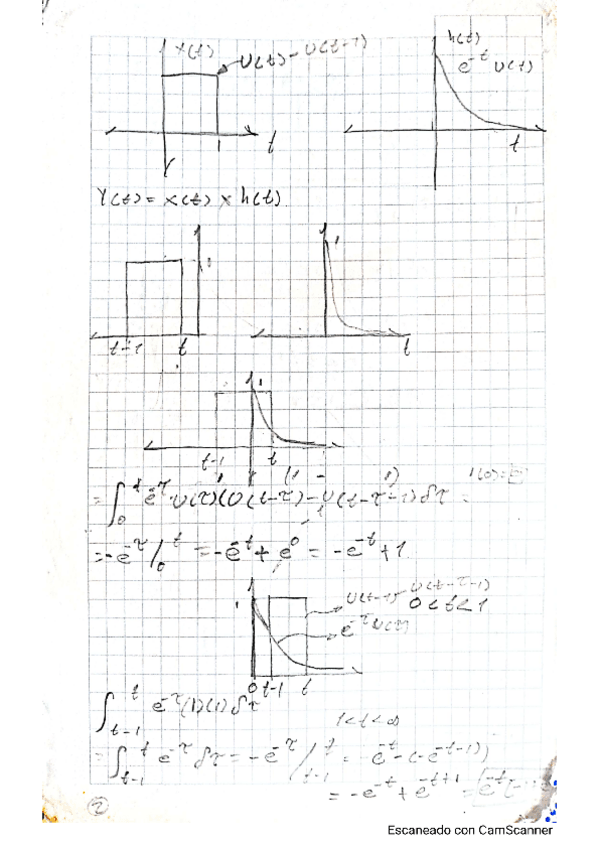 x(t) U(t)-U(t-1)
h(t)
e^-t U(t)
1 t
t
Y(t) = x(t) x h(t)
t-1 t
1
t
1
t-1 t
= ∫_0^t e^-τ U(τ)(U(t-τ)-U(t-τ-1)dτ =
= -e^-τ /_0^t = -e^-t + e^0 = -e^-t + 1
0<t<1
1
e^-τ U(τ)
0 t-1 t
∫_{t-1}^t e^-τ (1)(1) dτ
1<t<∞
= ∫_{t-1}^t e^-τ dτ = -e^-τ /_{t-1}^t = -e^-t -(-e^-(t-1))
= -e^-t + e^-t+1 =
2
Escaneado con CamScanner